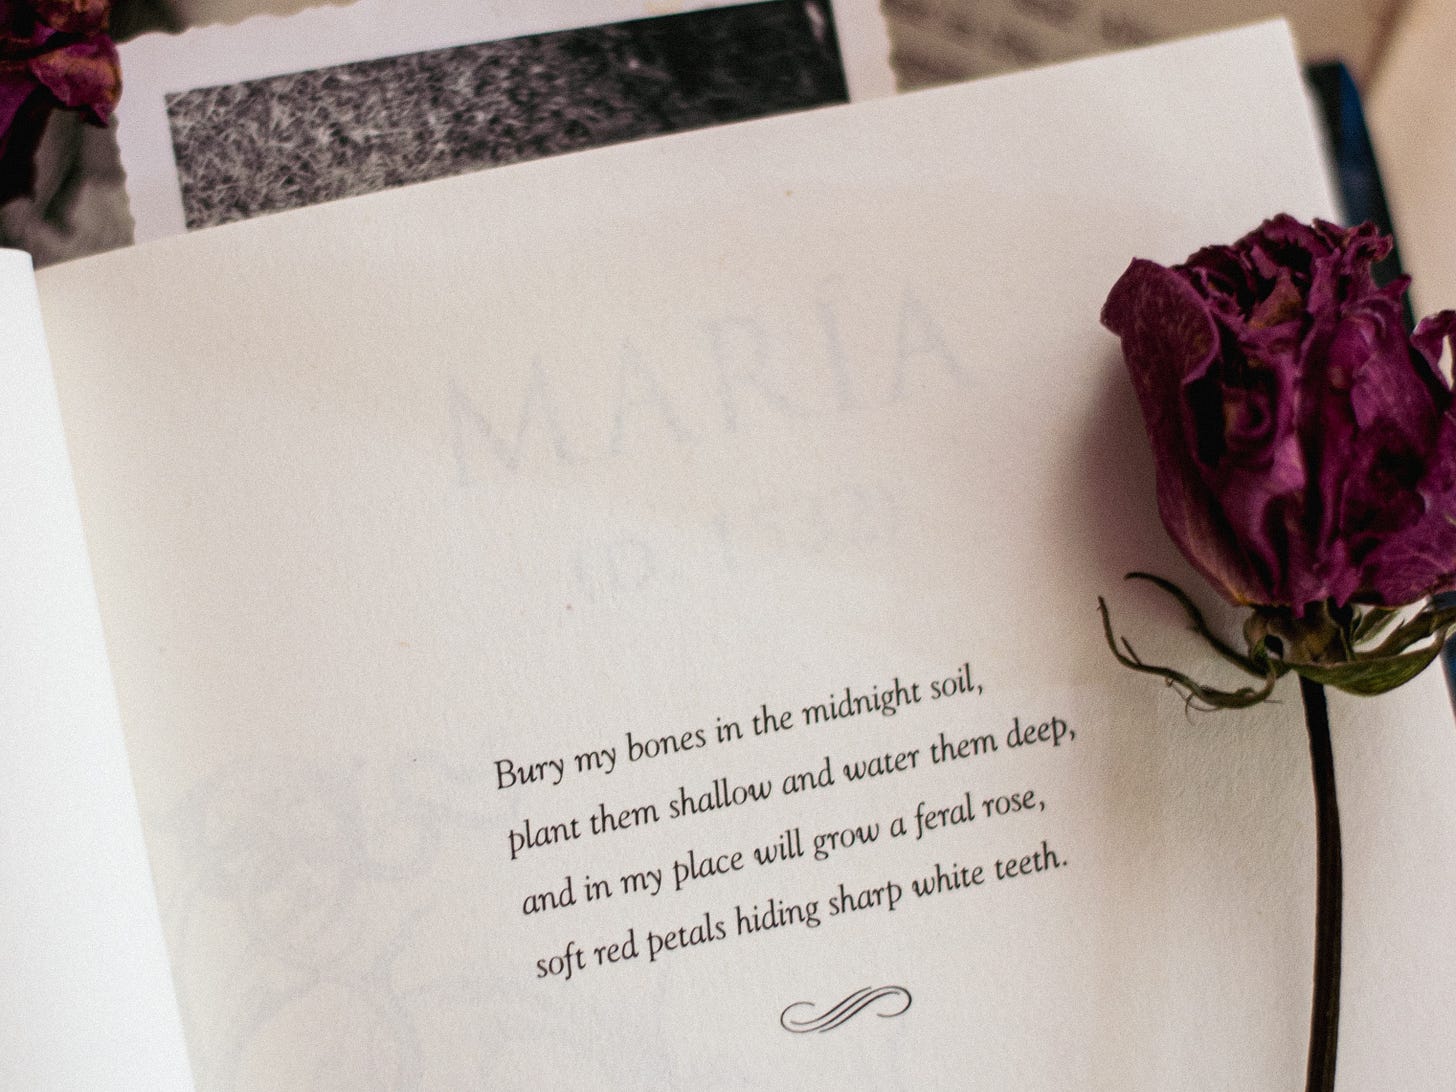 MARÍA
Bury my bones in the midnight soil,
plant them shallow and water them deep,
and in my place will grow a feral rose,
soft red petals hiding sharp white teeth.